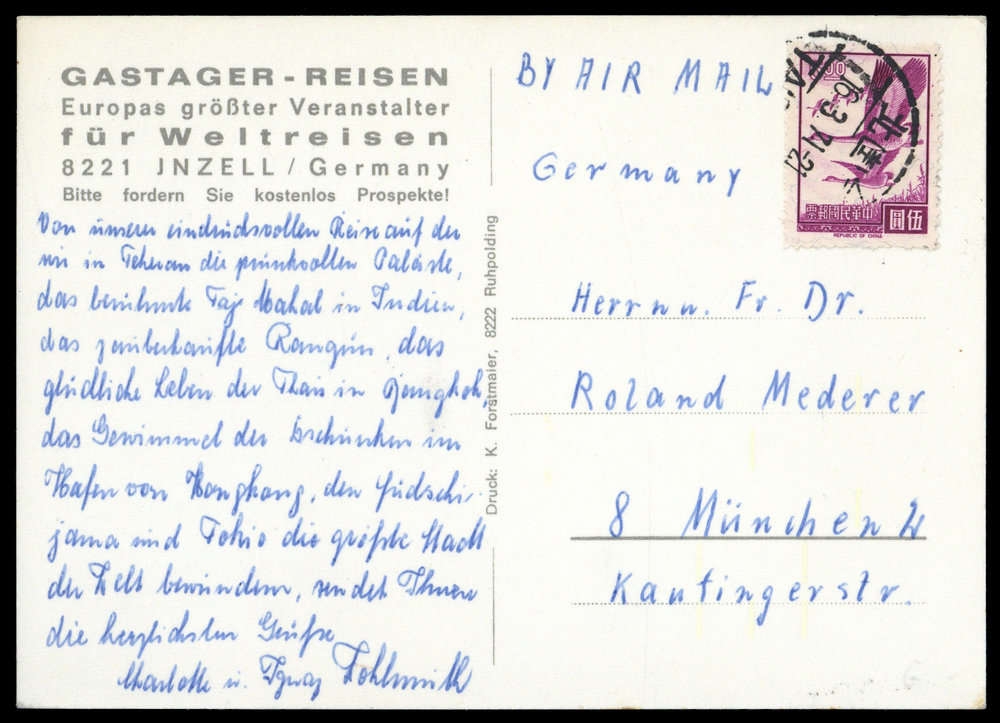 GASTAGER-REISEN
Europas größter Veranstalter
für Weltreisen
8221 JNZELL / Germany
Bitte fordern Sie kostenlos Prospekte!
Von unserer eindrucksvollen Reise auf der
wir in Teheran die prunkvollen Paläste,
das berühmte Taj Mahal in Indien,
das zauberhafte Rangun, das
glückliche Leben der Thais in Bangkok,
das Gewimmel der Dschunken im
Hafen von Hongkong, den Fudschi-
jama und Tokio die größte Stadt
der Welt bewundern, sendet Ihnen
die herzlichsten Grüße
Charlotte u. Ignaz
Druck: K. Forstmaier, 8222 Ruhpolding
BY AIR MAIL
Germany
Herrn u. Fr. Dr.
Roland Mederer
8 München 21
Kautingerstr.
中華民國郵票
伍圓
REPUBLIC OF CHINA
TAI
16.3.71-21
北